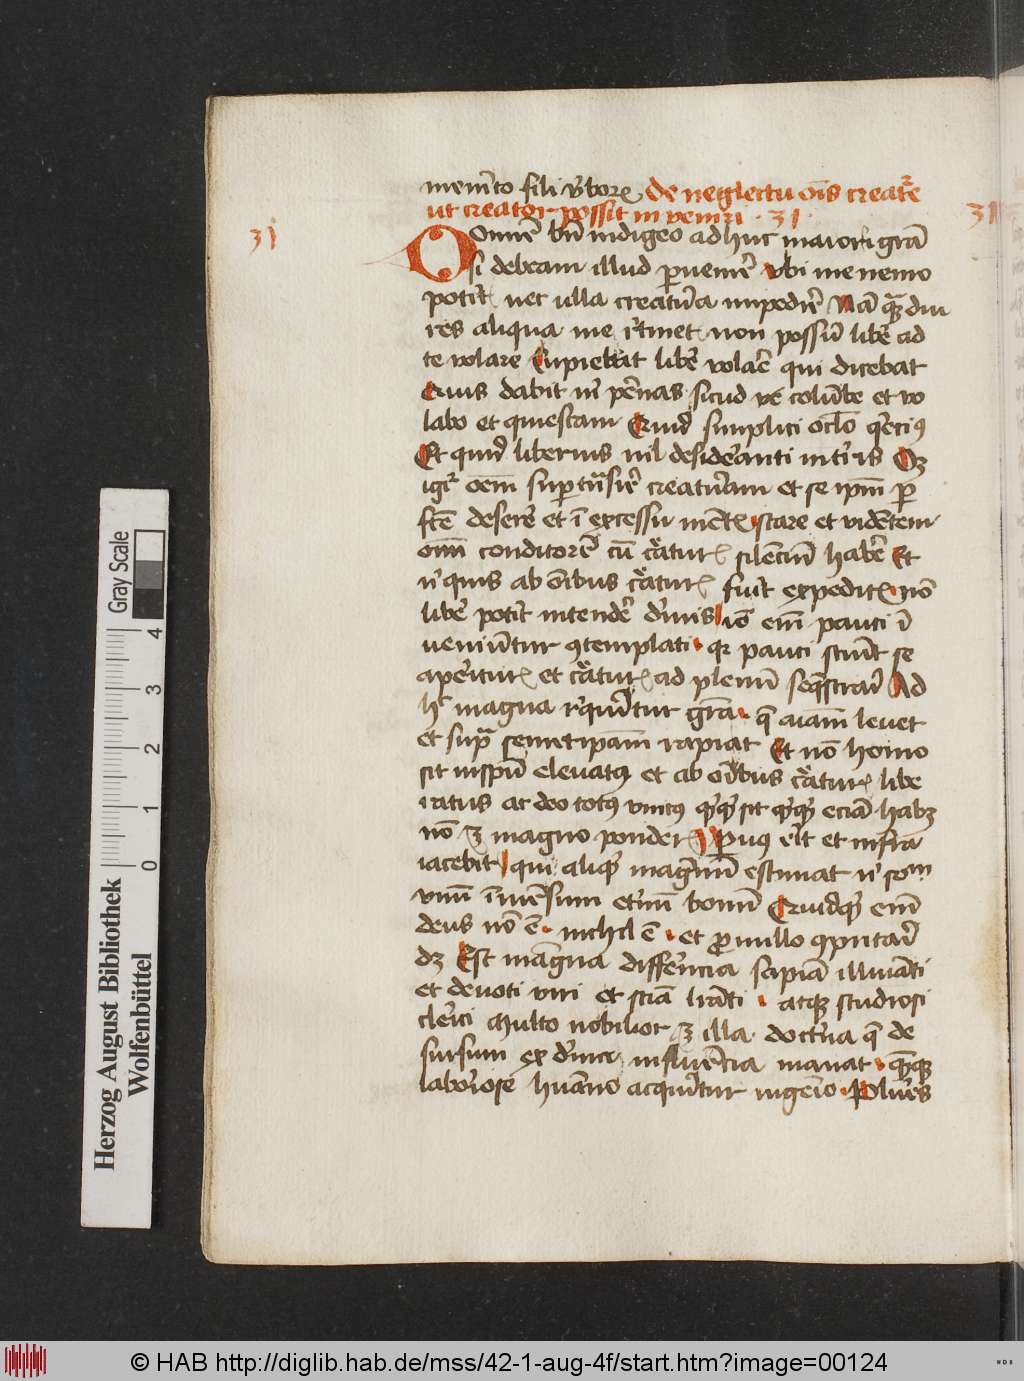 meme͂to fili v͂borꝫ De neglectu oi͂s creatͬe
ut creator possit in veniri · 31 ·
31
31
Domi͂e bn͂ indigeo adhuc maiori gra͂
si debeam illud ꝑueni͂e vbi me nemo
poti͂t nec ulla creatu͂a impedi͂e Na͂ qͣmdiu
res aliqua me re͂tinet non possu͂ libe͂ ad
te volare Cupiebat libe͂ vola͂e qui dicebat
Quis dabit mͥ pe͂nas sicud colu͂be et vo
labo et quiescam Quid simplici oclo͂ qͥeciꝰ
Et quid liberius nil desideͣanti in te͂ris Oꝫ
igiͬ oe͂m suꝑtͣnsi͂e creatu͂am et se ipm͂ ꝑ
fc͂e desere͂ et i͂ excessu me͂tꝫ stare et vide͂tem
om͂ conditore͂ cu͂ c͂aturꝫ sile͂ciu͂ habe͂e Et
nͥ quis ab o͂ibus c͂aturꝫ fui͂t expeditꝫ no͂
libe͂ poti͂t intende͂e di͂uis io͂ em͂ pauci i͂
ueniu͂tur ꝯtemplati qꝛ pauci sciu͂t se
a peritur͂ꝫ et c͂aturꝫ ad plenu͂ seq͂stra͂i Ad
hͦ magna re͂qui͂tur gra͂ q͂ aia͂m leuet
et supͣ semetipa͂m rapiat Et no͂ homo
sit in spu͂ eleuatꝰ et ab o͂ibus c͂aturꝫ libe
ratus ac deo totꝰ vnitꝰ qͥꝺqͥꝺ sit qͥꝺqͥꝺ ecia͂ habꝫ
no͂ ꝫ magno ponderꝫ Paruꝰ e͂it et infra
iacebit qui aliqͥꝺ magnu͂ estimat nͥ som
vnu͂ i͂me͂sum ete͂nu͂ bonu͂ Quidqͥꝺ em͂
deus no͂ e͂ · nichil e͂ · et ꝓ nullo ꝯputa͂i
dꝫ Est ma͂gna diffe͂ncia sapia͂ illuia͂ti
et deuoti viri et scia͂ lr͂ati · atqꝫ studiosi
cle͂ici Multo nobilior ꝫ illa docti͂na q͂ de
sursum ex di͂ina influe͂ncia manat · q͂mqꝫ
labo͂iose hu͂ano acqui͂itur inge͂io · Plu͂es
Herzog August Bibliothek
Wolfenbüttel
0 1 2 3 4
Gray Scale
© HAB http://diglib.hab.de/mss/42-1-aug-4f/start.htm?image=00124